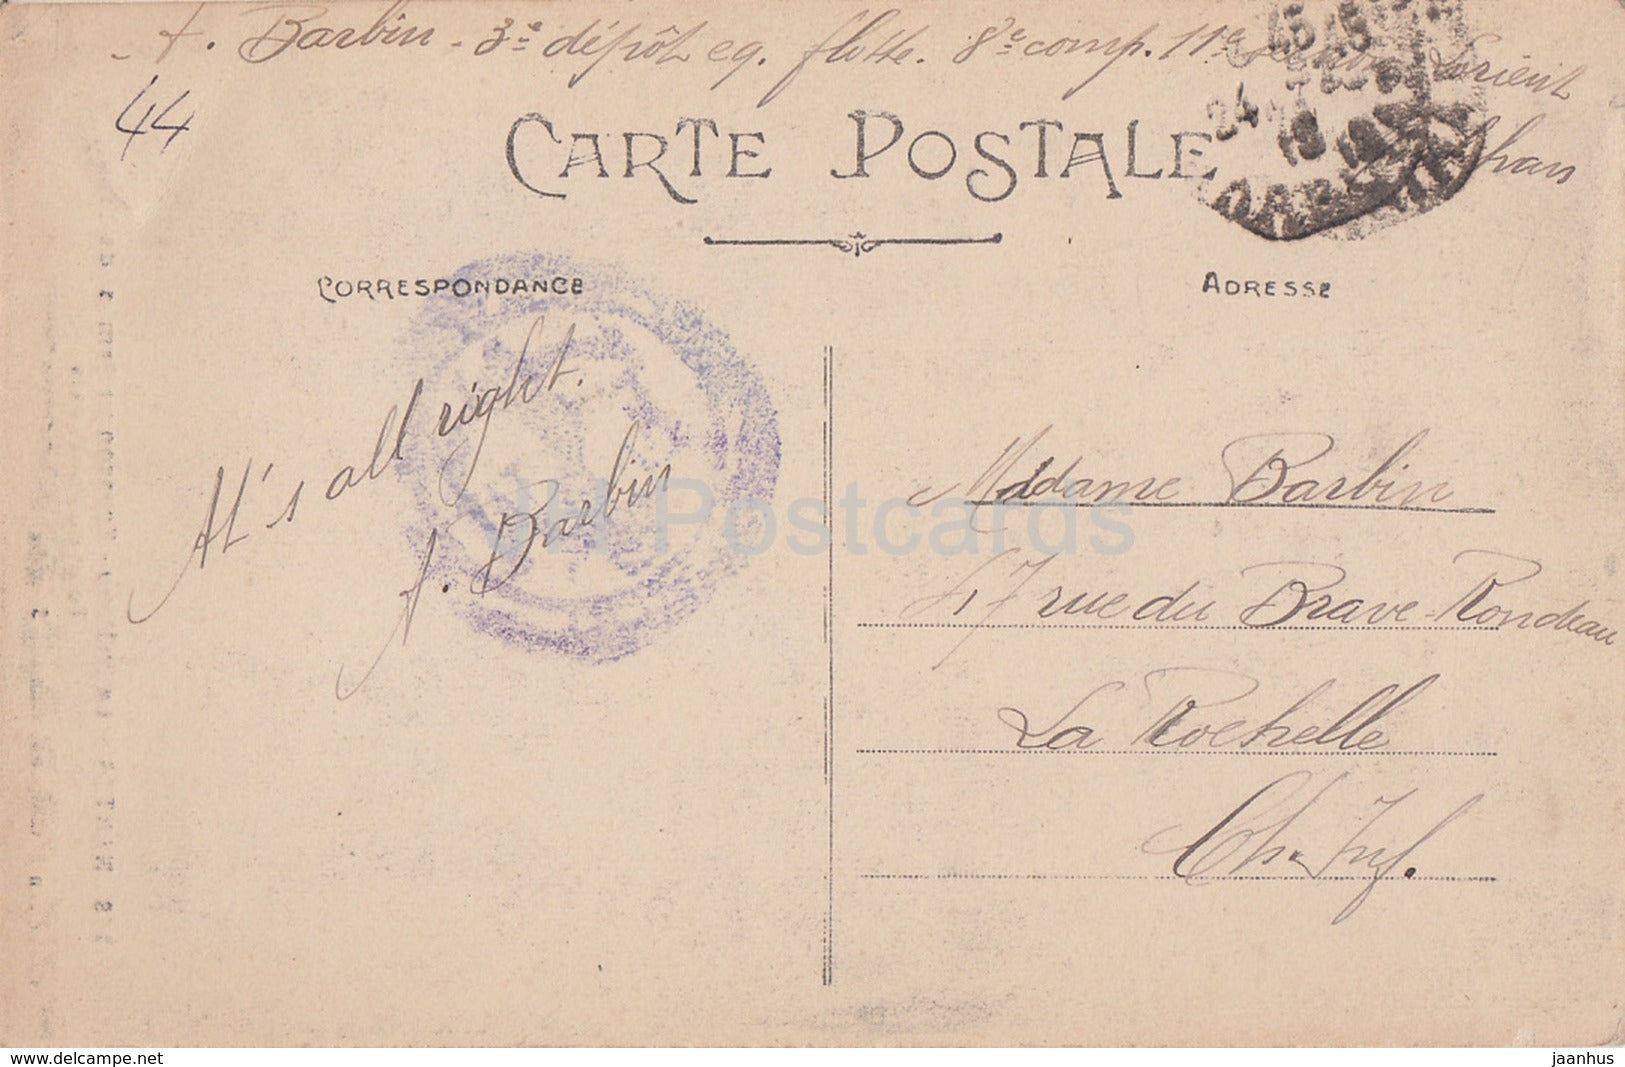 A. Barbin - 3e dépôt eq. flotte. 8e comp. 11e Lorient
44
CARTE POSTALE
CORRESPONDANCE
ADRESSE
It's all right.
A. Barbin
Madame Barbin
47 rue du Brave-Rondeau
La Rochelle
Ch. Inf.
JH Postcards
www.delcampe.net
jaanhus